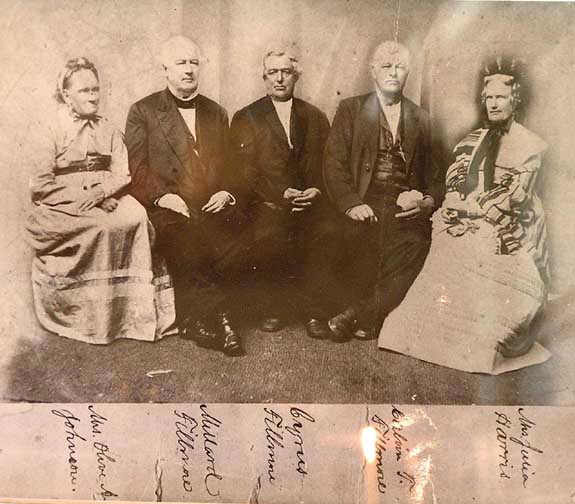 Mrs. Olive A
Johnson.
Millard
Fillmore
Cyrus
Fillmore
Fillmore
Mrs Julia
Harris